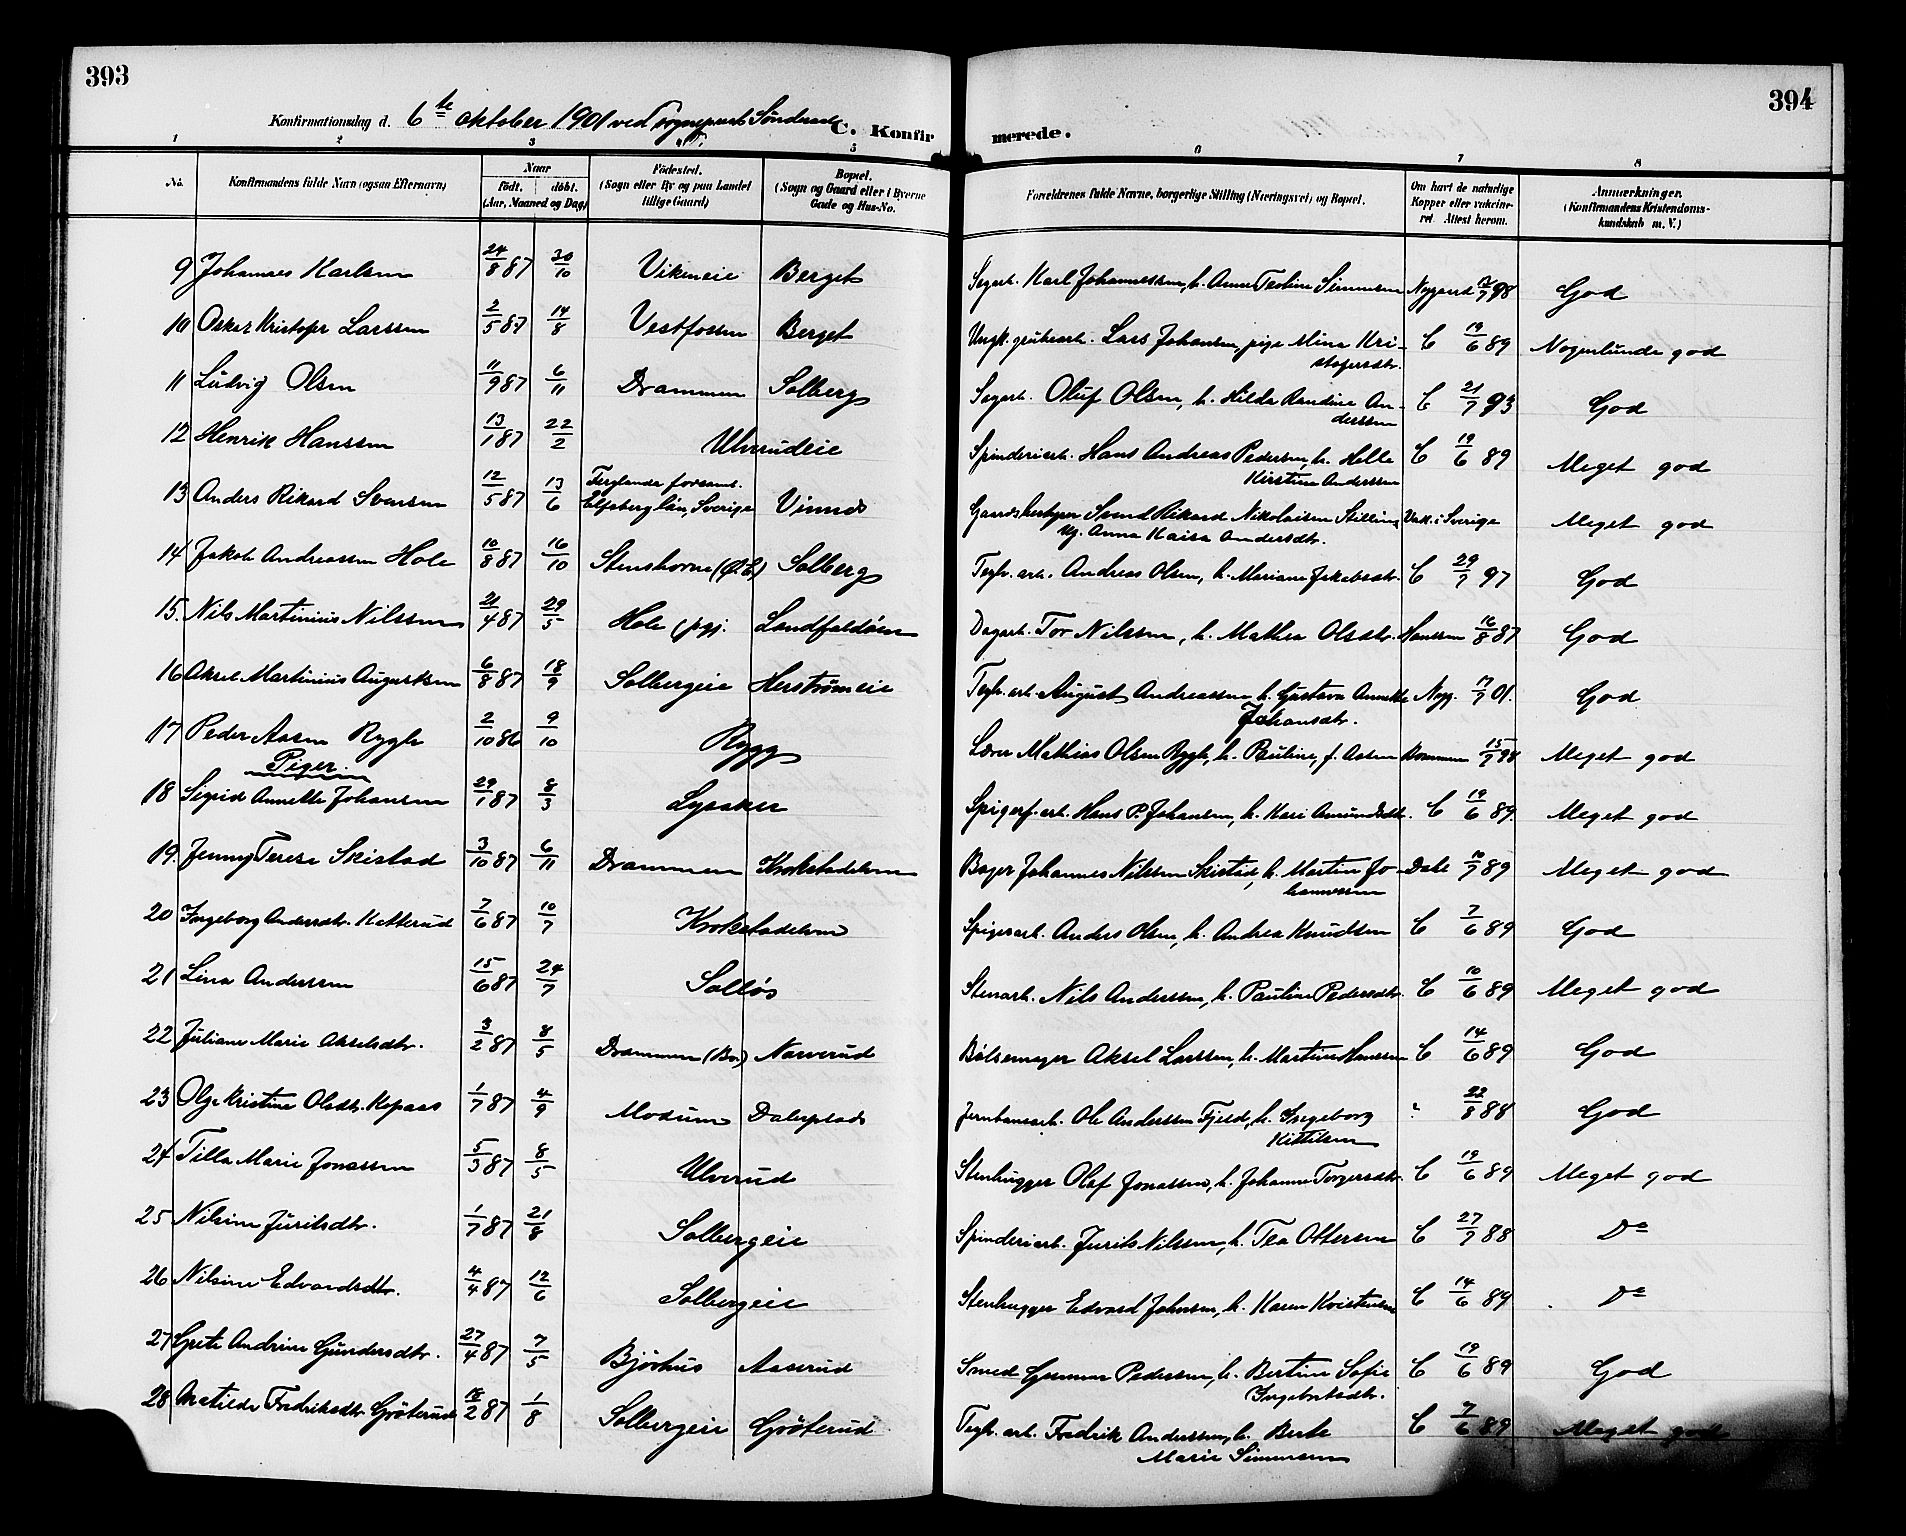 393
394
Konfirmationsdag d. 6te oktober 1901 ved Sogneprest Sønderaal
C. Konfirmerede.
1 2 3 5 6 7 8
No. Konfirmandens fulde Navn (ogsaa Efternavn) Naar født. døbt. (Aar, Maaned og Dag) Fødested. (Sogn eller By og paa Landet tillige Gaard) Bopæl. (Sogn og Gaard eller i Byerne Gade og Hus-No. Forældrenes fulde Navne, borgerlige Stilling (Næringsvei) og Bopæl. Om havt de naturlige Kopper eller vakcineret. Attest herom. Anmærkninger. (Konfirmandens Kristendomskundskab m. V.)
9 Johannes Karlsen 24/8 87 30/10 Vikeneie Berget Sagarb. Karl Johannessen, h. Anne Teoline Simensen Nygaard 12/7 98 God
10 Oskar Kristofer Larssen 2/5 87 14/8 Vestfossen Berget Ungk. grubearb. Lars Johansen, pige Mina Kristofersdtr. C 19/6 89 Nogenlunde god
11 Ludvig Olsen 11/9 87 6/11 Drammen Solberg Sagarb. Oluf Olsen, h. Hilda Randine Anderssen C 21/7 93 God
12 Henrik Hanssen 13/1 87 22/2 Ulverudeie Spinderiarb. Hans Andreas Pedersen, h. Helle Kirstine Anderssen C 19/6 89 Meget god
13 Anders Rikard Svensen 12/5 87 13/6 Færglanda forsaml. Elfsborg län, Sverige Vinnes Gaardsbestyrer Svend Rikard Nikolaisen Stilling Ug. Anna Kaisa Andersdtr. Vak. i Sverige Meget god
14 Jakob Andreassen Hole 10/8 87 16/10 Stenshorne (Ø.E) Solberg Teglv. arb. Andreas Olsen, h. Mariane Jakobsdtr. C 29/7 97 God
15. Nils Martinius Nilssen 21/4 87 29/5 Hole pgj. Landfaldøen Dagarb. Tor Nilssen, h. Mathea Olsdtr. Hanssen 16/8 87 God
16 Aksel Martinius Augustsen 6/8 87 18/9 Solbergeie Herstrømeie Teglv. arb. August Andreassen h. Gustava Annette Johansdtr. Nyg. 17/7 01. God
17 Peder Aasen Rygh 2/10 86 9/10 Rygg Lærer Mathias Olsen Rygh, h. Pauline, f. Aasen 15/7 98 Meget god
Piger.
18 Sigrid Annette Johansen 29/1 87 8/3 Lysaker Spigerf. arb. Hans P. Johansen, h. Kari Amundsdtr. C 19/6 89 Meget god
19. Jenny Terese Skistad 3/10 87 6/11 Drammen Krokstadelven Bager Johannes Nilssen Skistad, h. Martine Johannessen Dahl 10/7 89 Meget god
20 Ingeborg Andersdtr. Katterud 7/6 87 10/7 Krokstadelven Spigerarb. Anders Olsen, h. Andrea Knudsen C 7/6 89 God
21 Lina Anderssen 15/6 87 24/7 Solløs Stenarb. Nils Anderssen, h. Pauline Pedersdtr. C 10/6 89 Meget god
22 Juliane Marie Akselsdtr. 3/2 87 8/5 Drammen (Br.) Narverud Bølsemager Aksel Larssen, h. Martine Hanssen C 14/6 89 God
23 Olga Kristine Olsdtr. Kopaas 1/7 87 4/9 Modum Dalerplads Jernbanearb. Ole Anderssen Fjeld, h. Ingeborg Kittilsen ? 22/8 88 God
24 Tilla Marie Jonassen 5/3 87 8/5 Ulverud Stenhugger Olaf Jonassen, h. Johanne Torgersdtr. C 19/6 89 Meget god
25 Nilsine Juritsdtr. 1/7 87 21/8 Solbergeie Spinderiarb. Jurits Nilssen, h. Tea Ottersen C 27/7 88 Do
26 Nilsine Edvardsdtr. 4/4 87 12/6 Solbergeie Stenhugger Edvard Johnsen, h. Karen Kristensen C 14/6 89 Do
27 Grete Andrine Gundersdtr. 27/4 87 7/5 Bjørhus Aaserud Smed Gunnar Pedersen, h. Bertine Sofie Ingebretsdtr. C 19/6 89 God
28 Matilde Fredriksdtr. Grøterud 18/2 87 1/8 Solbergeie Grøterud Teglv. arb. Fredrik Anderssen, h. Berte Marie Simensen C 7/6 89 Meget god